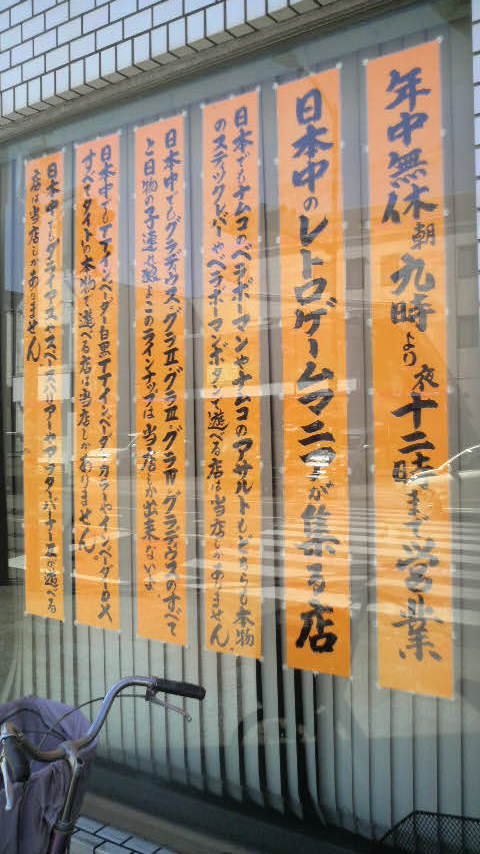 年中無休朝九時より夜十二時まで営業
日本中のレトロゲームマニアが集る店
日本でもナムコのベラボーマンやナムコのアサルトもどちらも本物
のステックレバーやベラボーマンボタンで遊べる店は当店しかありません
日本中でもグラデウスグラⅡグラⅢグラⅣグラデウスのすべて
と
日本中でもTTインベーダー白黒TTインベーダーカラーやインベーダーDX
すべてタイトーの本物で遊べる店は当店しかありません。
日本中でもダライアスやスペースハリアーやアフターバーナーⅡが遊べる
店は当店しかありません